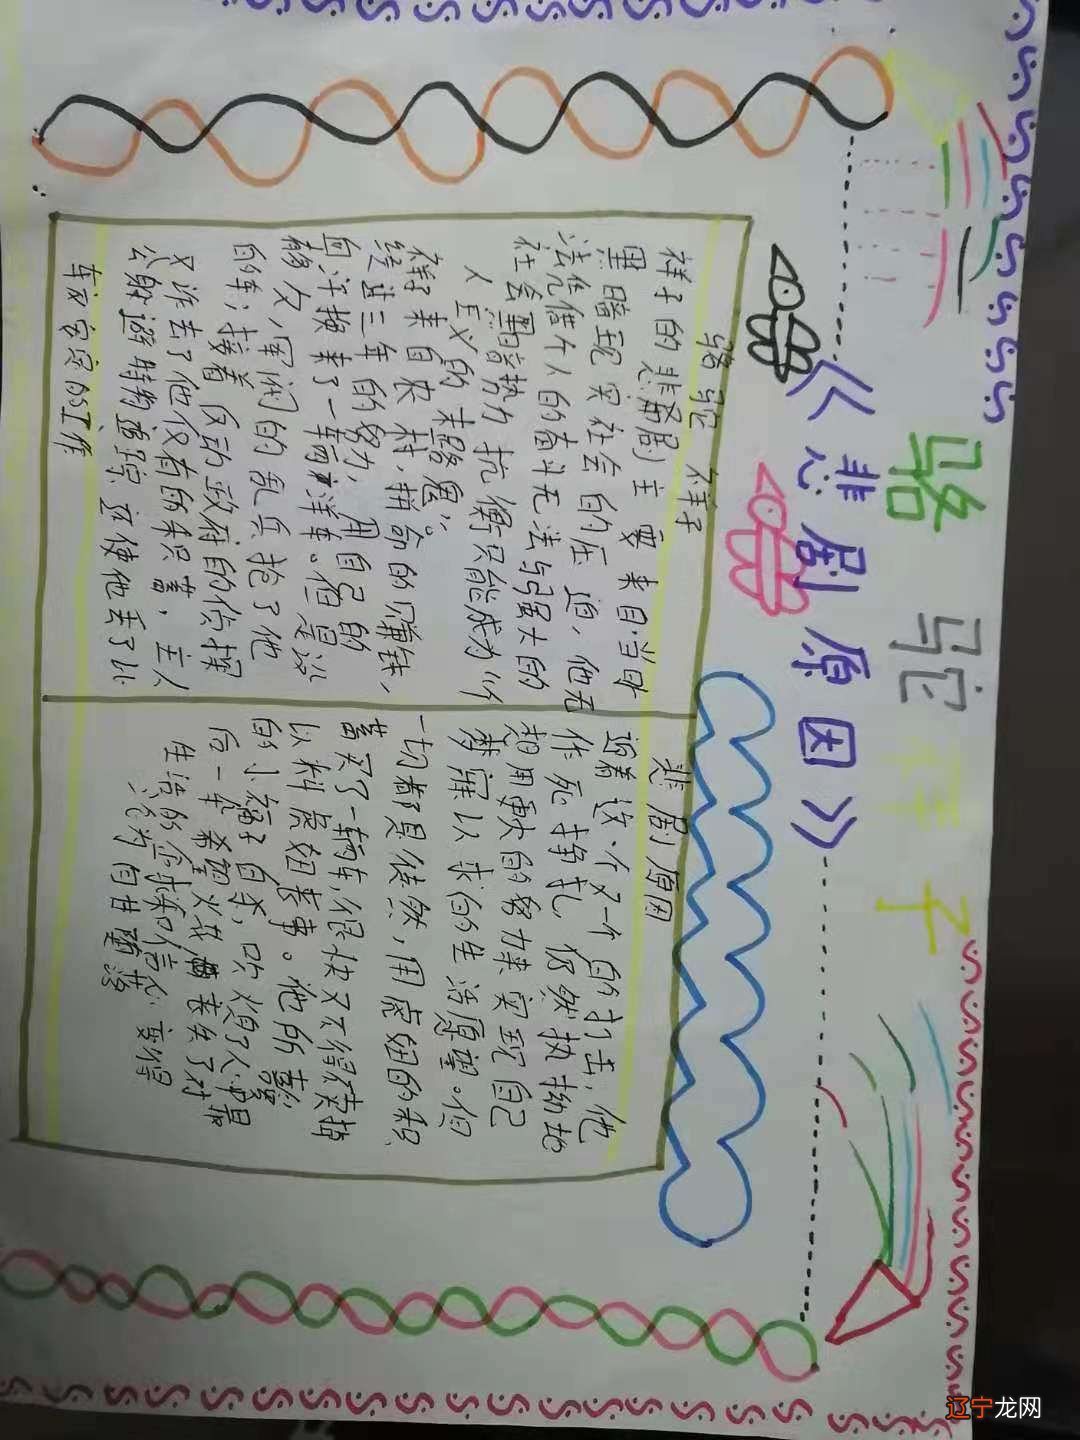 骆驼祥子
《悲剧原因》
骆驼祥子
祥子的悲剧主要来自当时
黑暗现实社会的压迫，他无
法凭借个人的奋斗无法与强大的
社会黑暗势力抗衡只能成为"个
人主义的末路鬼"。
祥子来自农村，拼命的赚钱，
经过三年的努力，用自己的
血汗换来了一辆洋车。但是没
够久，军阀的乱兵抢了他
的车；接着反动政府的侦探
又诈去了他仅有的积蓄，主人
公躲避特务追踪还使他丢了比
较安定的工作
悲剧原因
迎着这个又一个的打击，他
作死挣扎，仍然执拗地
想用更大的努力来实现自己
梦寐以求的生活愿望。但
一切都是徒然，用虎妞的积
蓄买了一辆车，很快又不得不卖掉
以料虎妞丧事。他所喜爱
的小福子自杀，吹熄了人中最
后一朵希望火花，丧失了对
生活的企求和信心，变得
自甘堕落
辽宁龙网